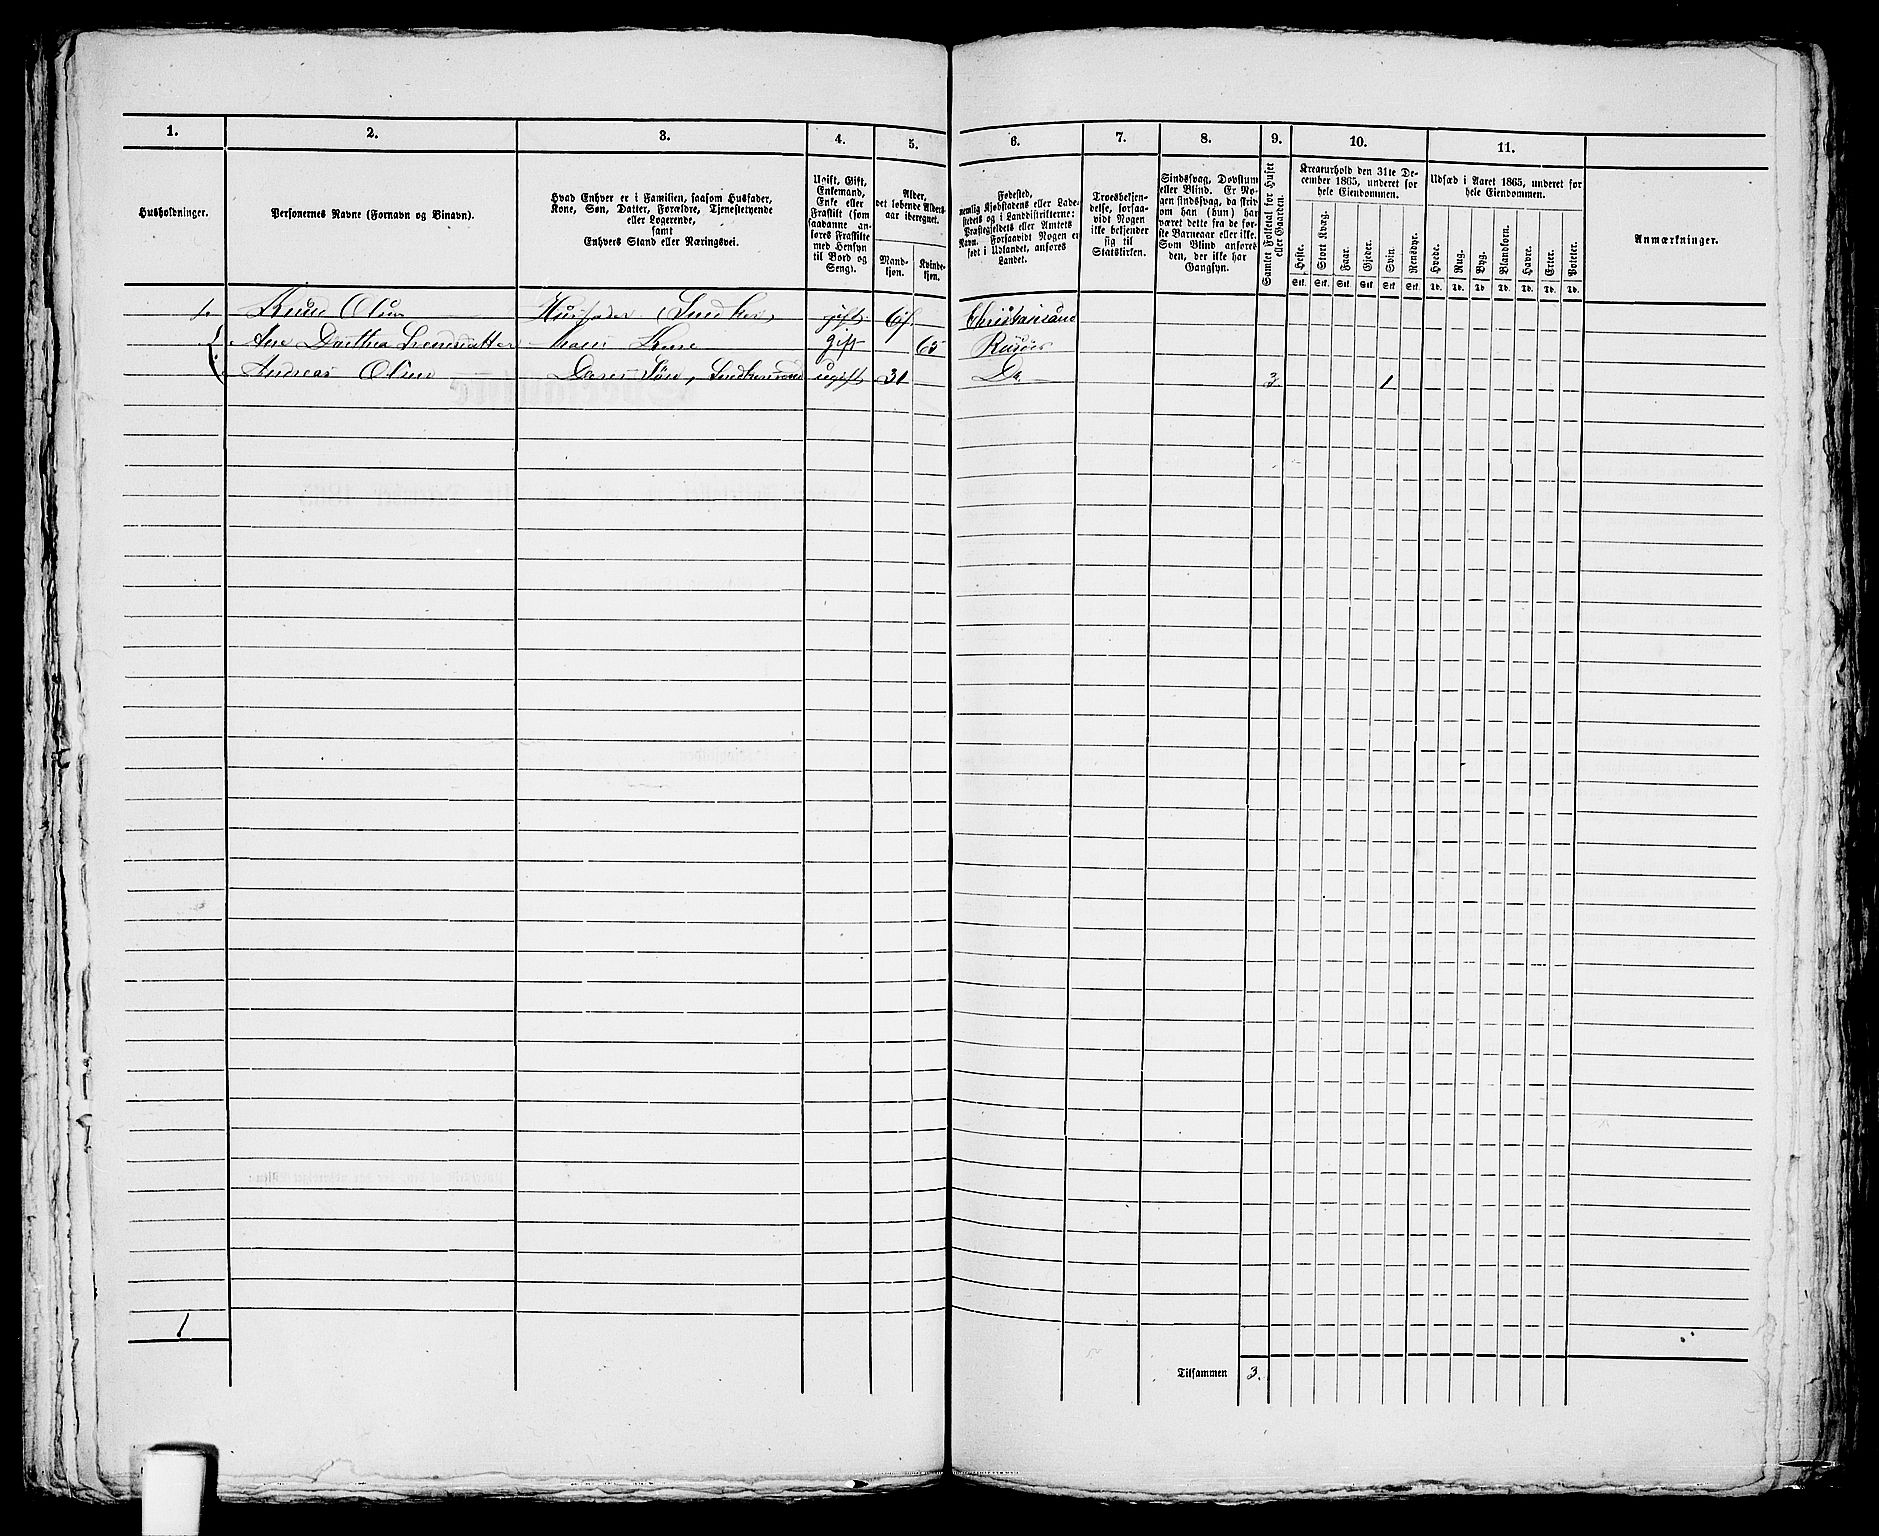 1. 2. 3. 4. 5. 6. 7. 8. 9. 10. 11.
Husholdninger.
Personernes Navne (Fornavn og Binavn).
Hvad Enhver er i Familien, saasom Husfader,
Kone, Søn, Datter, Forældre, Tjenestetyende
eller Logerende,
samt
Enhvers Stand eller Næringsvei.
Ugift, Gift,
Enkemand,
Enke eller
Fraskilt (som
saadanne an-
føres Fraskilte
med Hensyn
til Bord og
Seng).
Alder,
det løbende Alders-
aar iberegnet.
Mand-
kjøn.
Kvinde-
kjøn.
Fødested,
nemlig Kjøbstadens eller Lade-
stedets og i Landdistrikterne:
Præstegjeldets eller Amtets
Navn. Forsaavidt Nogen er
født i Udlandet, anføres
Landet.
Troesbekjen-
delse, forsaa-
vidt Nogen
ikke bekjender
sig til
Statskirken.
Sindssvag, Døvstum
eller Blind. Er No-
gen sindssvag, da skriv
om han (hun) har
været dette fra de før-
ste Barneaar eller ikke.
Som Blind anføres
den, der ikke har
Gangsyn.
Samlet Folketal for Huset
eller Gaarden.
Kreaturhold den 31te De-
cember 1865, underet for
hele Eiendommen.
Heste. Stort Kvæg. Faar. Gjeder. Svin. Rensdyr.
Stk. Stk. Stk. Stk. Stk. Stk.
Udsæd i Aaret 1865, underet for
hele Eiendommen.
Hvede. Rug. Byg. Blandkorn. Havre. Erter. Poteter.
Td. Td. Td. Td. Td. Td. Td.
Anmærkninger.
1. Olsen Husfader, Snedker, gift Christiansand
Ane Dorthea Hans Kone gift 65 Risøer
Andreas Olsen Deres Søn, ugift 31 Do. 3. 1
1
Tilsammen 3.